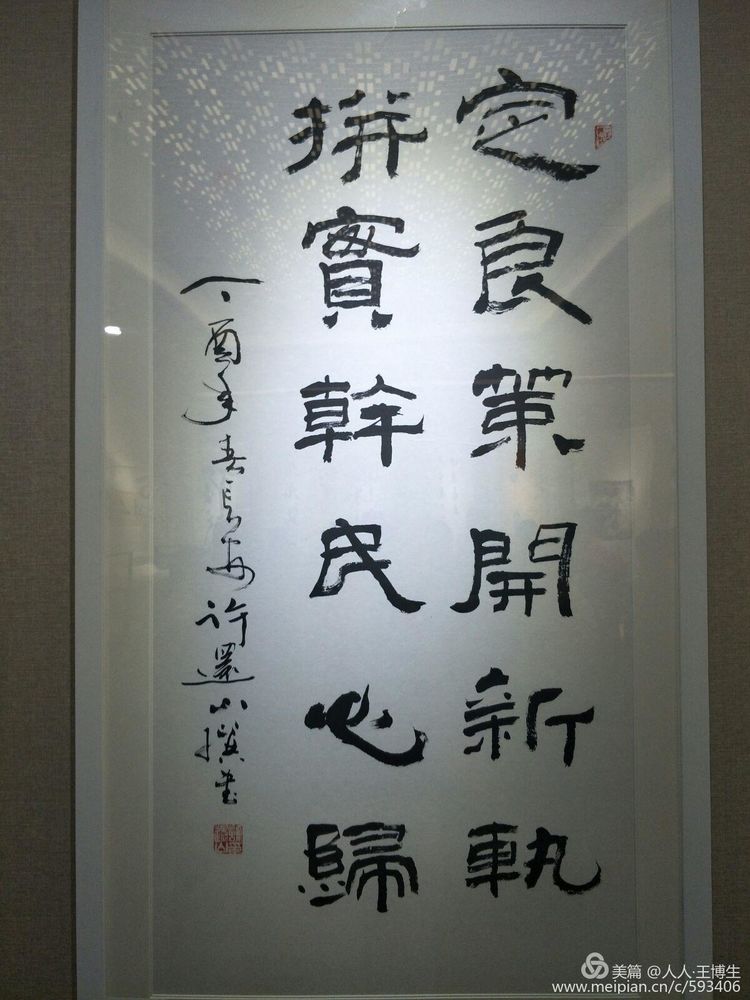 定良策開新軌
拼實幹民心歸
丁酉年春長安許還山撰書
美篇 @人人·王博生
www.meipian.cn/c/593406